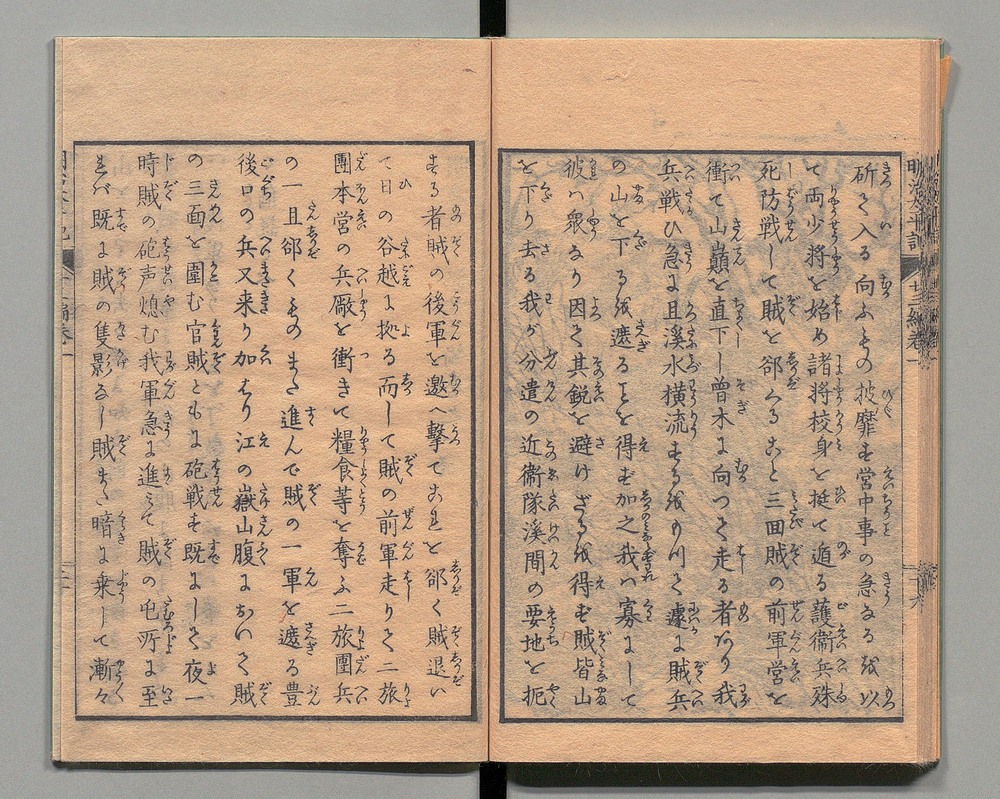 明治太平記
廿三編卷一
十六
斫て入る向ふもの披靡す営中事の急なるを以
て両少将を始め諸将校身を挺て遁る護衛兵殊
死防戦して賊を郤くること三回賊の前軍営を
衝て山巓を直下し曾木に向つて走る者あり我
兵戦ひ急に且溪水横流するをもつて遽に賊兵
の山を下るを遮ることを得ず加之我ハ寡にして
彼ハ衆なり因て其鋭を避けざるを得ず賊皆山
を下り去る我が分遣の近衛隊溪間の要地を扼
する者賊の後軍を邀へ撃てこれを郤く賊退い
て日の谷越に拠る而して賊の前軍走りて二旅
團本営の兵厰を衝きて糧食等を奪ふ二旅團兵
の一且郤くものまた進んで賊の一軍を遮る豊
後口の兵又来り加はり江の嶽山腹において賊
の三面を圍む官賊ともに砲戦す既にして夜一
時賊の砲声熄む我軍急に進みて賊の屯所に至
れバ既に賊の隻影なし賊また暗に来して漸々